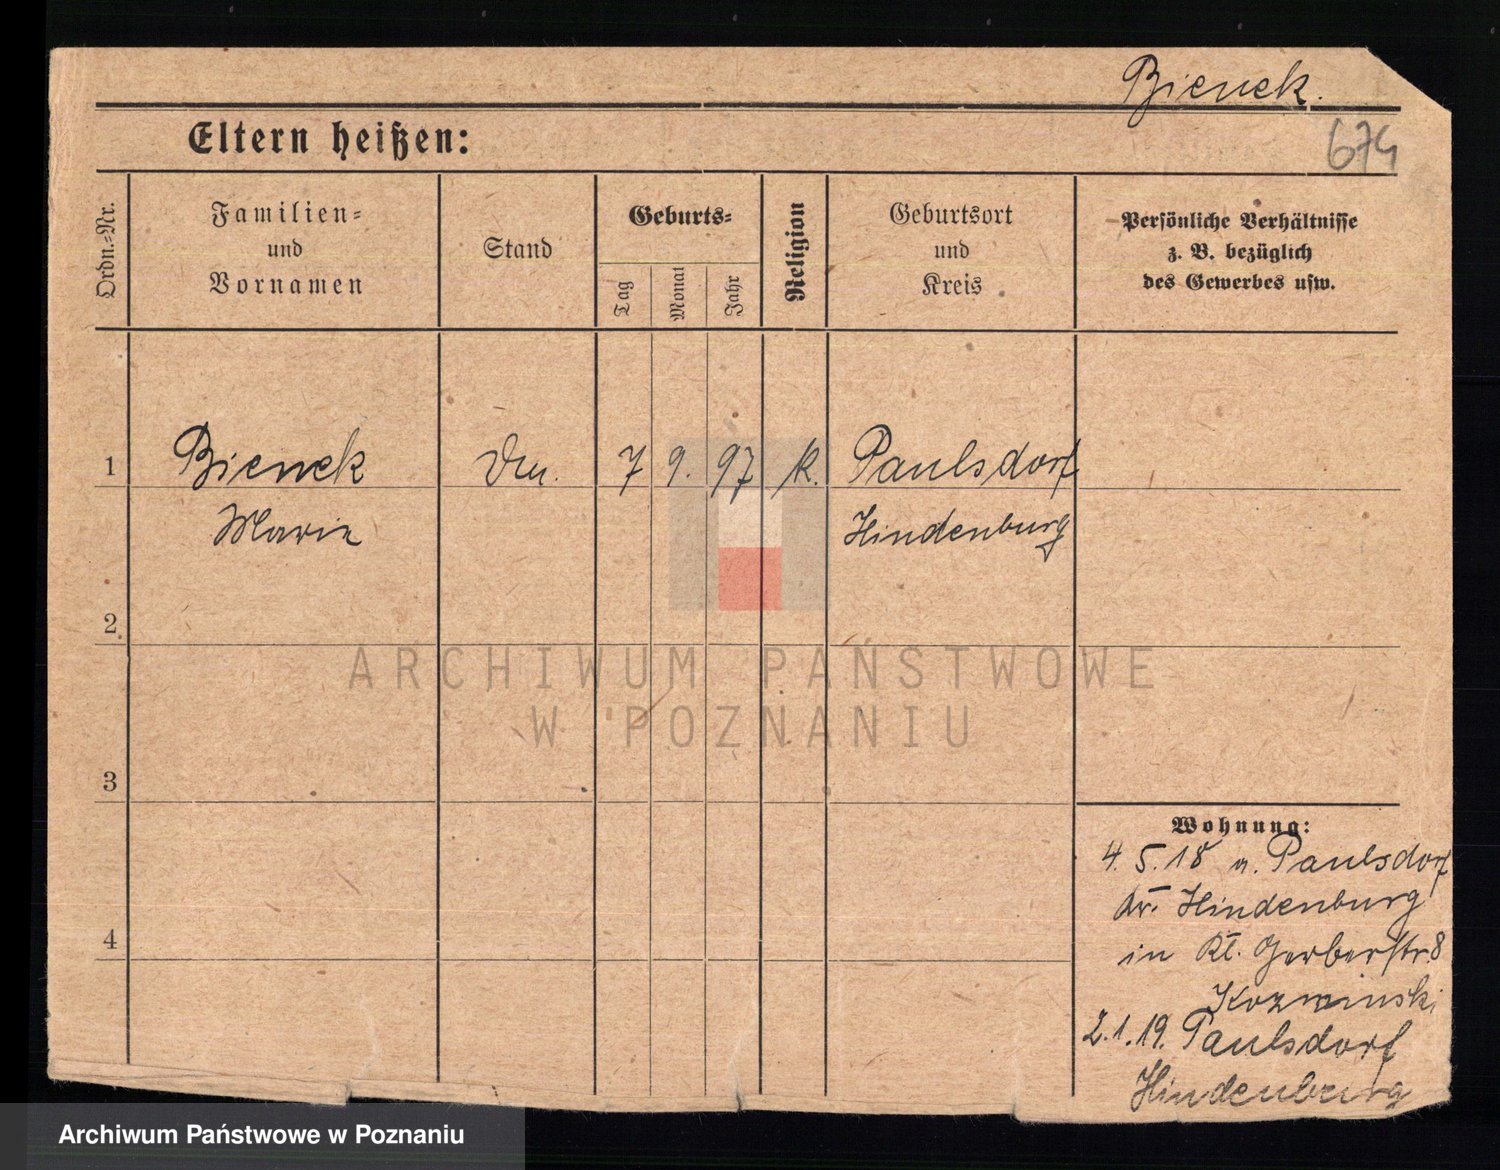 Bienek.
Eltern heißen:
674
Ordn.-Nr.
Familien-
und
Vornamen
Stand
Geburts-
Tag
Monat
Jahr
Religion
Geburtsort
und
Kreis
Persönliche Verhältnisse
z. B. bezüglich
des Gewerbes usw.
1
Bienek
7
9.
97
k.
Paulsdorf
Marie
Hindenburg
2
ARCHIWUM PAŃSTWOWE
W POZNANIU
3
4
Wohnung:
4. 5. 18 a. Paulsdorf
Kr. Hindenburg
in Kl. Gerberstr. 8
Kozminski
2. 1. 19. Paulsdorf
Hindenburg
Archiwum Państwowe w Poznaniu